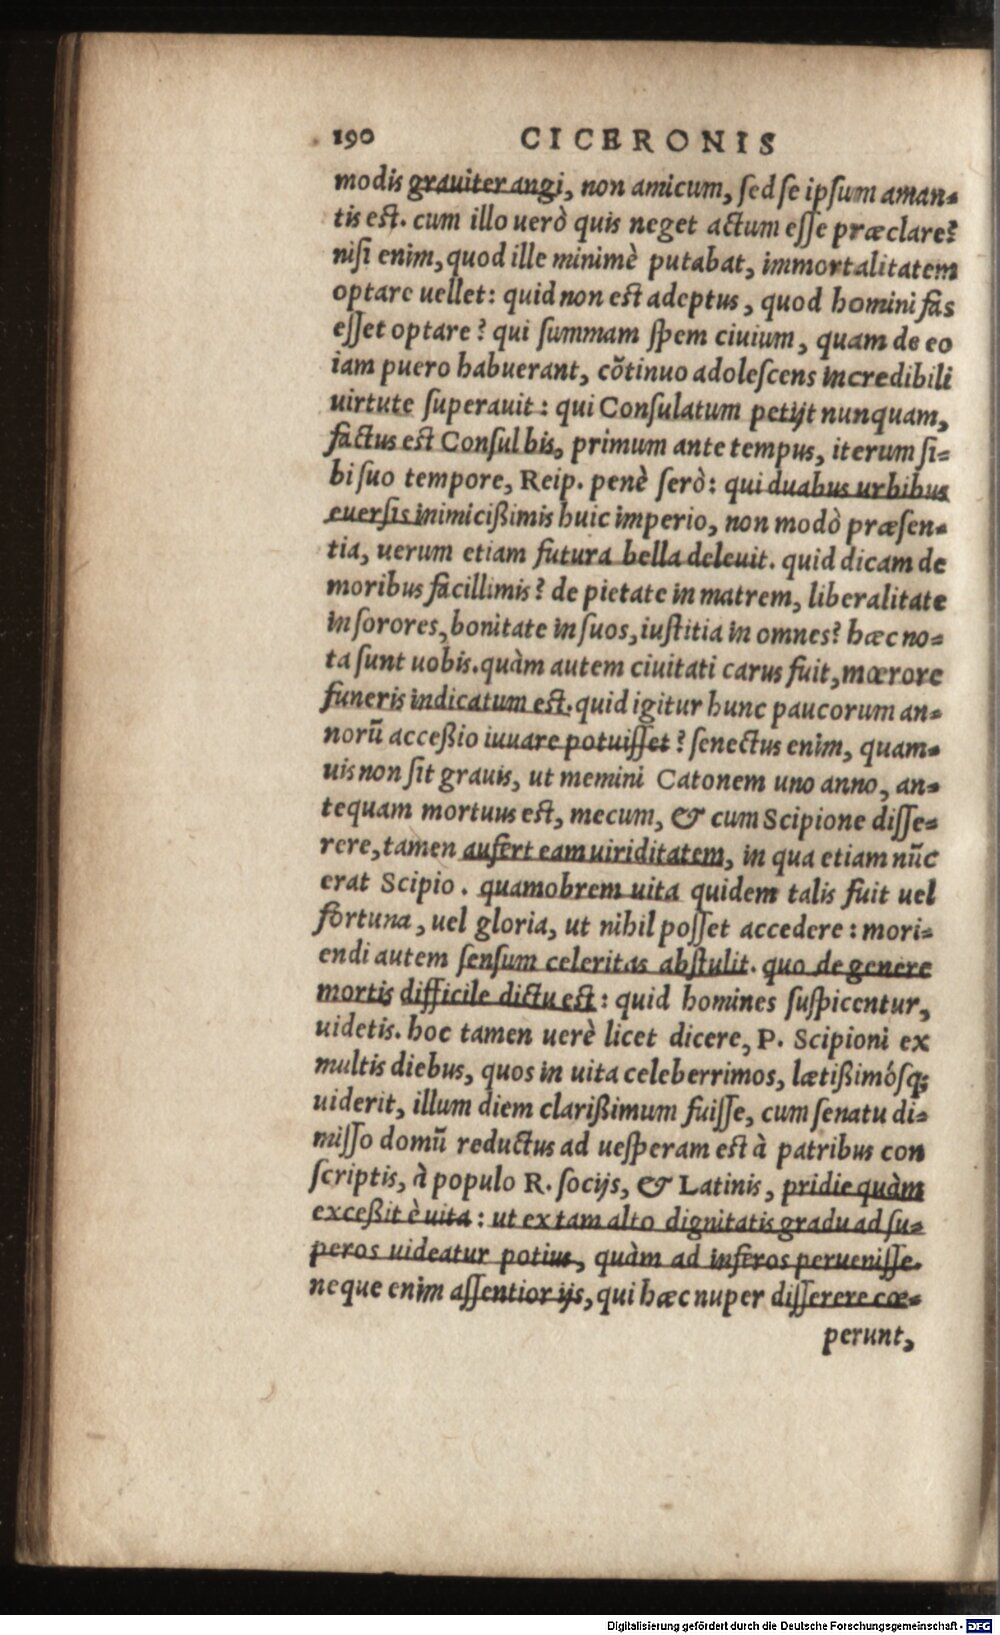 190 CICERONIS
modis grauiter angi, non amicum, sed se ipsum aman-
tis est. cum illo uerò quis neget actum esse præclare?
nisi enim, quod ille minimè putabat, immortalitatem
optare uellet: quid non est adeptus, quod homini fas
esset optare? qui summam spem ciuium, quam de eo
iam puero habuerant, cõtinuo adolescens incredibili
uirtute superauit: qui Consulatum petijt nunquam,
factus est Consul bis, primum ante tempus, iterum si-
bi suo tempore, Reip. penè serò: qui duabus urbibus
euersis inimicißimis huic imperio, non modò præsen-
tia, uerum etiam futura bella deleuit. quid dicam de
moribus facillimis? de pietate in matrem, liberalitate
in sorores, bonitate in suos, iustitia in omnes? hæc no-
ta sunt uobis. quàm autem ciuitati carus fuit, mœrore
funeris indicatum est. quid igitur hunc paucorum an-
norũ acceßio iuuare potuisset? senectus enim, quam-
uis non sit grauis, ut memini Catonem uno anno, an-
tequam mortuus est, mecum, & cum Scipione disse-
rere, tamen aufert eam uiriditatem, in qua etiam nũc
erat Scipio. quamobrem uita quidem talis fuit uel
fortuna, uel gloria, ut nihil posset accedere: mori-
endi autem sensum celeritas abstulit. quo de genere
mortis difficile dictu est: quid homines suspicentur,
uidetis. hoc tamen uerè licet dicere, P. Scipioni ex
multis diebus, quos in uita celeberrimos, lætißimósq;
uiderit, illum diem clarißimum fuisse, cum senatu di-
misso domũ reductus ad uesperam est à patribus con
scriptis, à populo R. socijs, & Latinis, pridie quàm
exceßit è uita: ut ex tam alto dignitatis gradu ad su-
peros uideatur potius, quàm ad inferos peruenisse.
neque enim assentior ijs, qui hæc nuper disserere cœ-
perunt,
Digitalisierung gefördert durch die Deutsche Forschungsgemeinschaft - DFG